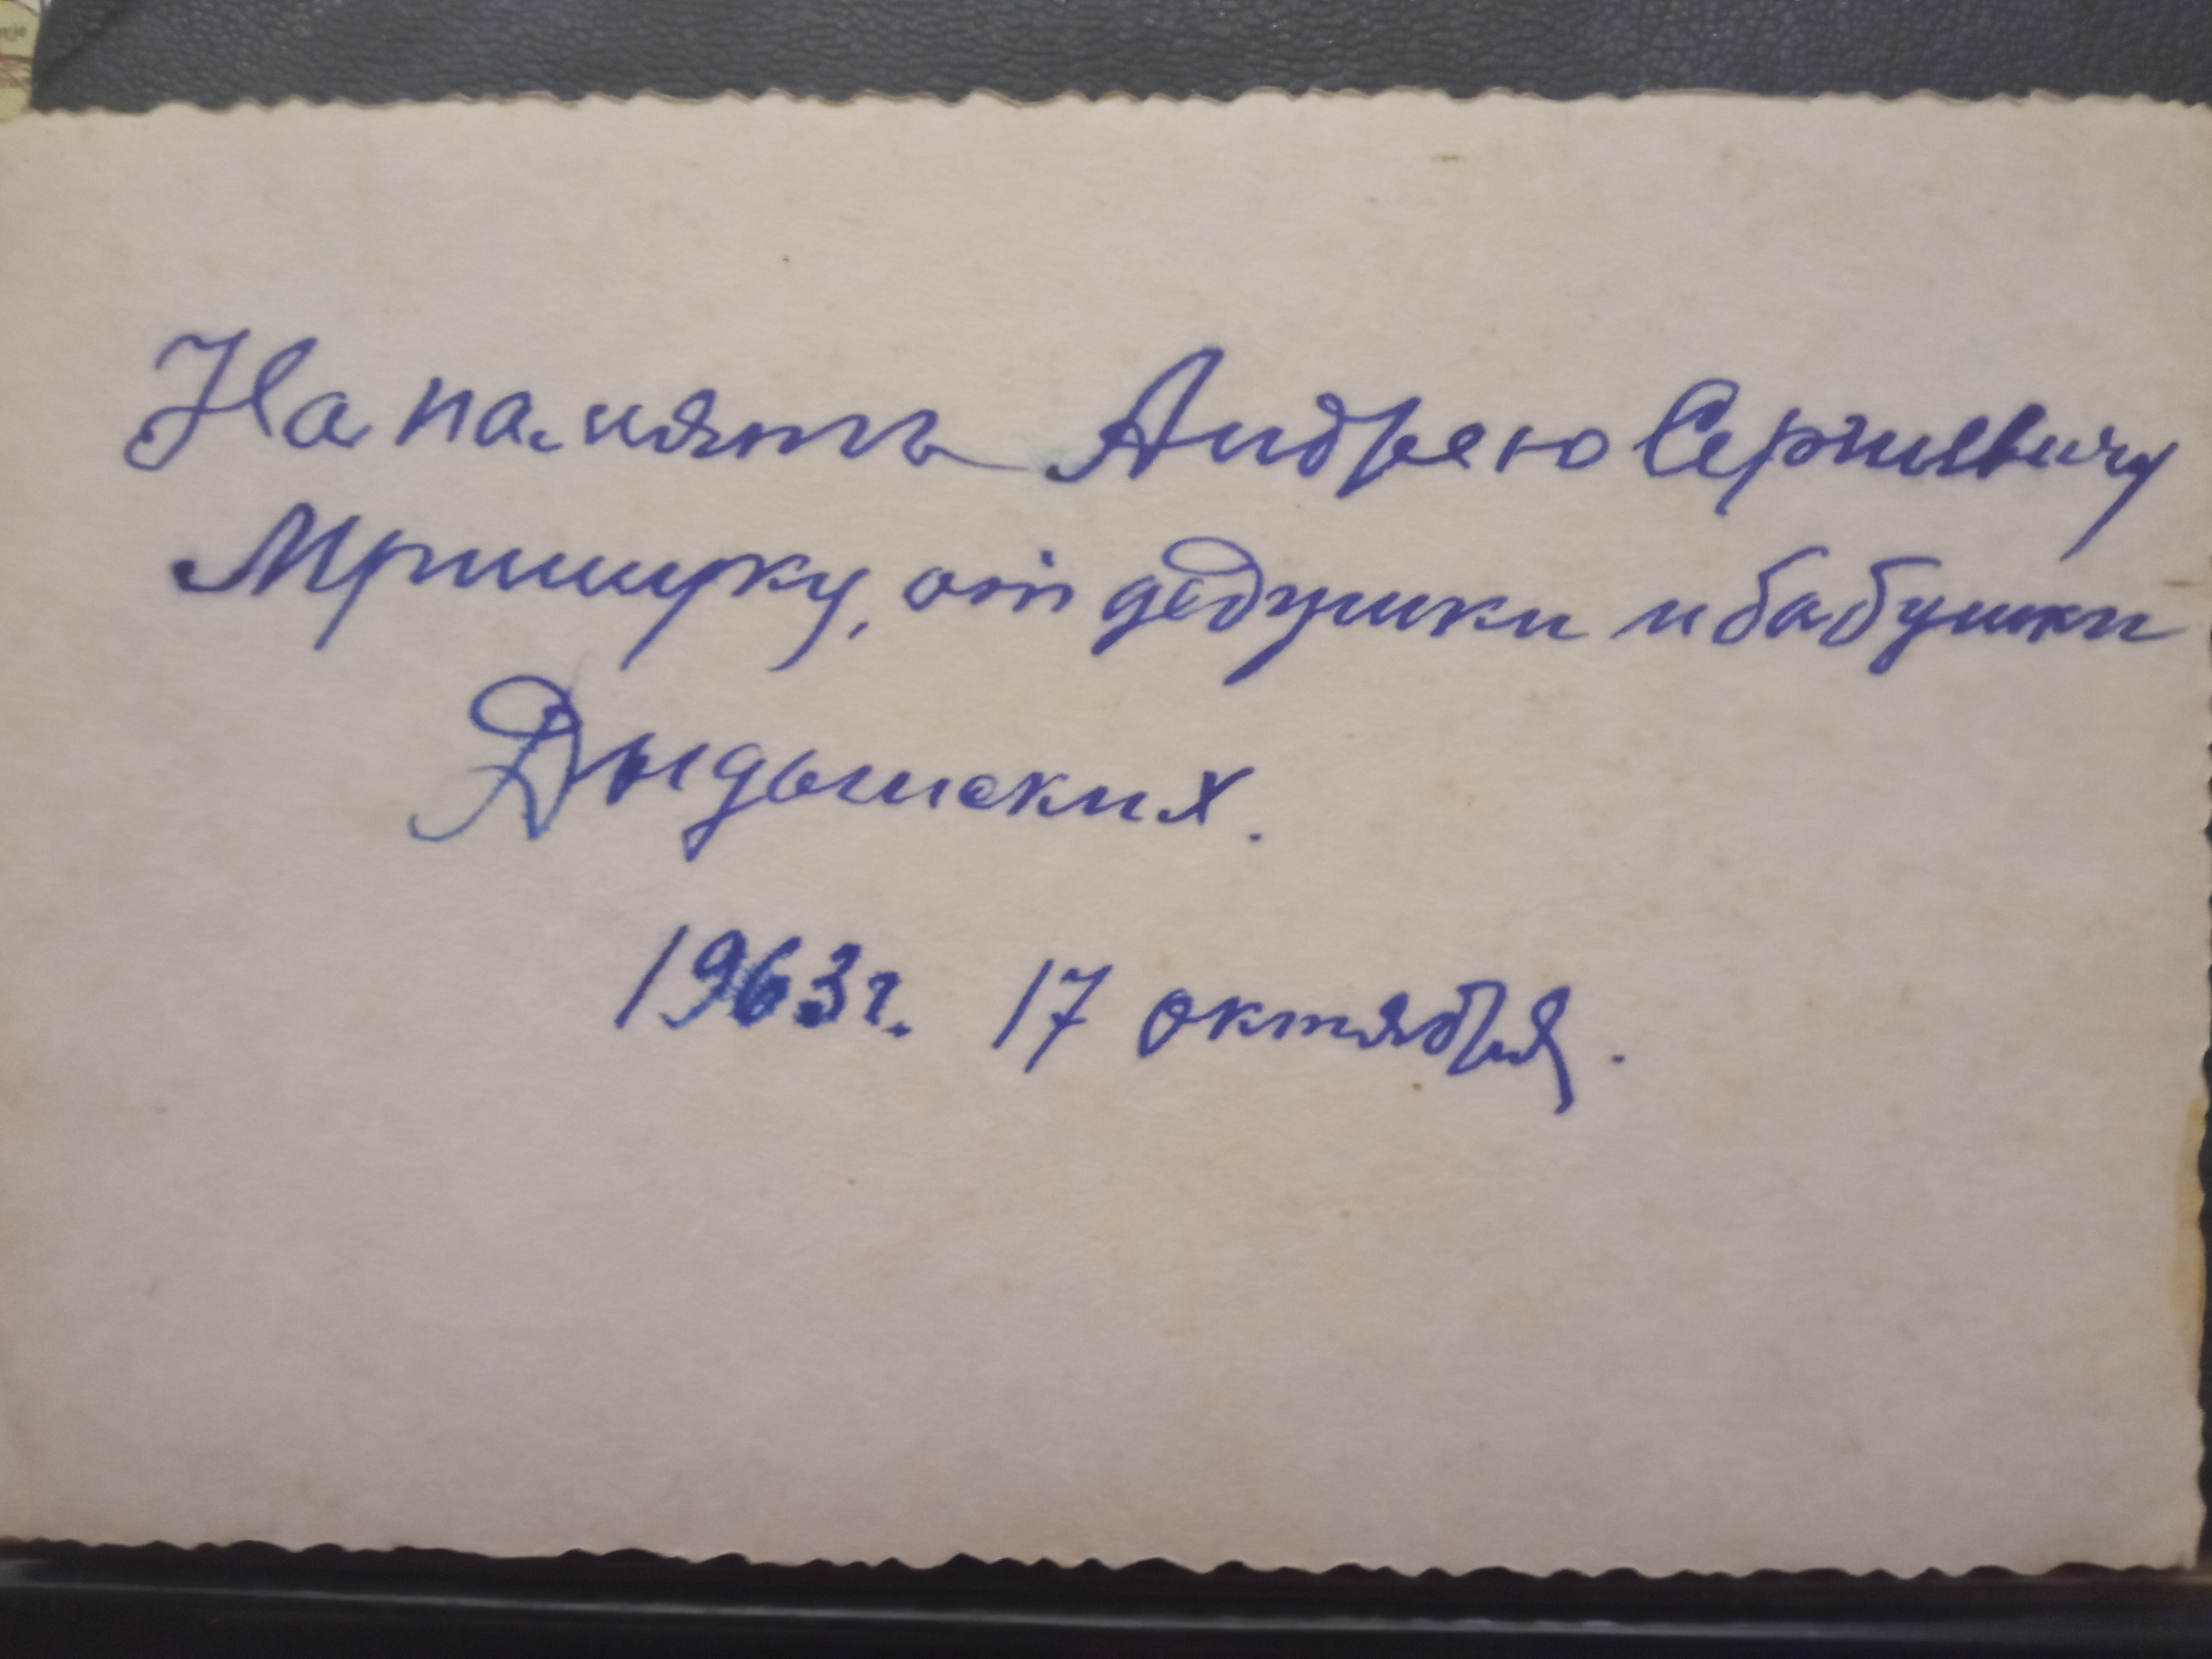 На память Андрею Сергиевичу
Мрищуку, от дедушки и бабушки
Дыдышских.
1963 г. 17 октября.